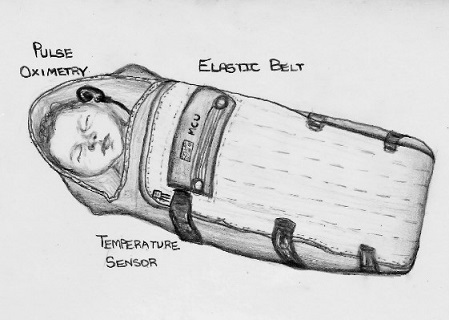 PULSE
OXIMETRY
ELASTIC BELT
MCU
TEMPERATURE
SENSOR